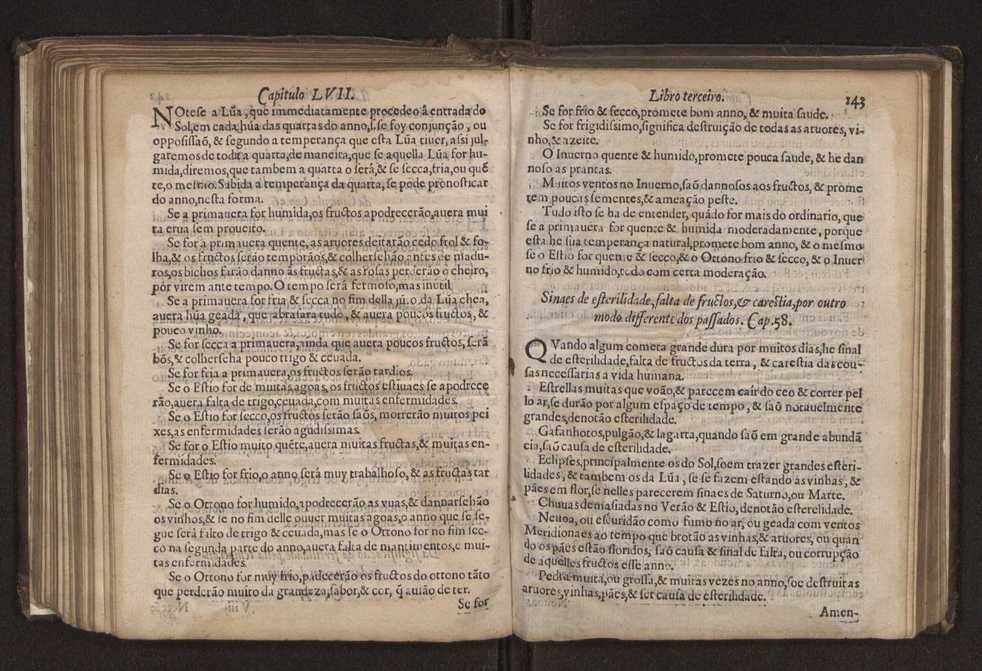 Capitulo LVII.
NOtese a Lũa, que immediatamente procedeo â entrada do
Sol, em cada hũa das quartas do anno, s. se foy conjunção, ou
oppossissaõ, & segundo a temperança que esta Lũa tiuer, assi jul-
garemos de toda a quarta, de maneira, que se aquella Lũa for hu-
mida, diremos, que tambem a quarta o será, & se secca, fria, ou quē
te, o mesmo. Sabida a temperança da quarta, se pode pronosticar
do anno, nesta forma.
Se a primauera for humida, os fructos apodrecerão, auera mui
ta erua sem proueito.
Se for a primauera quente, as aruores deitarão cedo frol & fo-
lha, & os fructos serão temporãos, & colherseháo antes de madu-
ros, os bichos farão danno âs fructas, & as rosas perderão o cheiro,
por virem ante tempo. O tempo será fermoso, mas inutil.
Se a primauera for fria & secca no fim della jũto da Lũa chea,
auera hũa geada, que abrasara tudo, & auera poucos fructos, &
pouco vinho.
Se for secca a primauera, ainda que auera poucos fructos, serã
bõs, & colherseha pouco trigo & ceuada.
Se for fria a primauera, os fructos serão tardios.
Se o Estio for de muitas agoas, os fructos estiuaes se apodrece
rão, auera falta de trigo, ceuada, com muitas enfermidades.
Se o Estio for secco, os fructos serão saõs, morrerão muitos pei
xes, as enfermidades serão agudissimas.
Se for o Estio muito quēte, auera muitas fructas, & muitas en-
fermidades.
Se o Estio for frio, o anno será muy trabalhoso, & as fructas tar
dias.
Se o Ottono for humido, apodrecerão as vuas, & dannarsehão
os vinhos, & se no fim delle ouuer muitas agoas, o anno que se se-
gue será falto de trigo & ceuada, mas se o Ottono for no fim sec-
co na segunda parte do anno, auera falta de mantimentos, e mui-
tas enfermidades.
Se o Ottono for muy frio, padecerão os fructos do ottono tãto
que perderão muito da grandeza, sabor, & cor, q̃ auião de ter.
Se for
Libro terceiro.
143
Se for frio & secco, promete bom anno, & muita saude.
Se for frigidissimo, significa destruição de todas as aruores, vi-
nho, & azeite.
O Inuerno quente & humido, promete pouca saude, & he dan
noso as prantas.
Muitos ventos no Inuerno, saõ dannosos aos fructos, & prome
tem poucas sementes, & ameação peste.
Tudo isto se ha de entender, quãdo for mais do ordinario, que
se a primauera for quente & humida moderadamente, porque
esta he sua temperança natural, promete bom anno, & o mesmo
se o Estio for quente & secco, & o Ottono frio & secco, & o Inuer
no frio & humido, tudo com certa moderação.
Sinaes de esterilidade, falta de fructos, & carestia, por outro
modo differente dos passados. Cap. 58.
QVando algum cometa grande dura por muitos dias, he sinal
de esterilidade, falta de fructos da terra, & carestia das cou-
sas necessarias a vida humana.
Estrellas muitas que voão, & parecem cair do ceo & correr pel
lo ar, se durão por algum espaço de tempo, & saõ notauelmente
grandes, denotão esterilidade.
Gafanhotos, pulgão, & lagarta, quando saõ em grande abundã
cia, saõ causa de esterilidade.
Eclipses, principalmente os do Sol, soem trazer grandes esteri-
lidades, & tambem os da Lũa, se se fazem estando as vinhas, &
pães em flor, se nelles parecerem sinaes de Saturno, ou Marte.
Chuuas demasiadas no Verão & Estio, denotão esterelidade.
Neuoa, ou escuridão como fumo no ar, ou geada com ventos
Meridionaes ao tempo que brotão as vinhas, & aruores, ou quan
do os pães estão floridos, saõ causa & sinal de falta, ou corrupção
de aquelles fructos esse anno.
Pedra muita, ou grossa, & muitas vezes no anno, soe destruir as
aruores, vinhas, pães, & ser causa de esterilidade.
Amen-